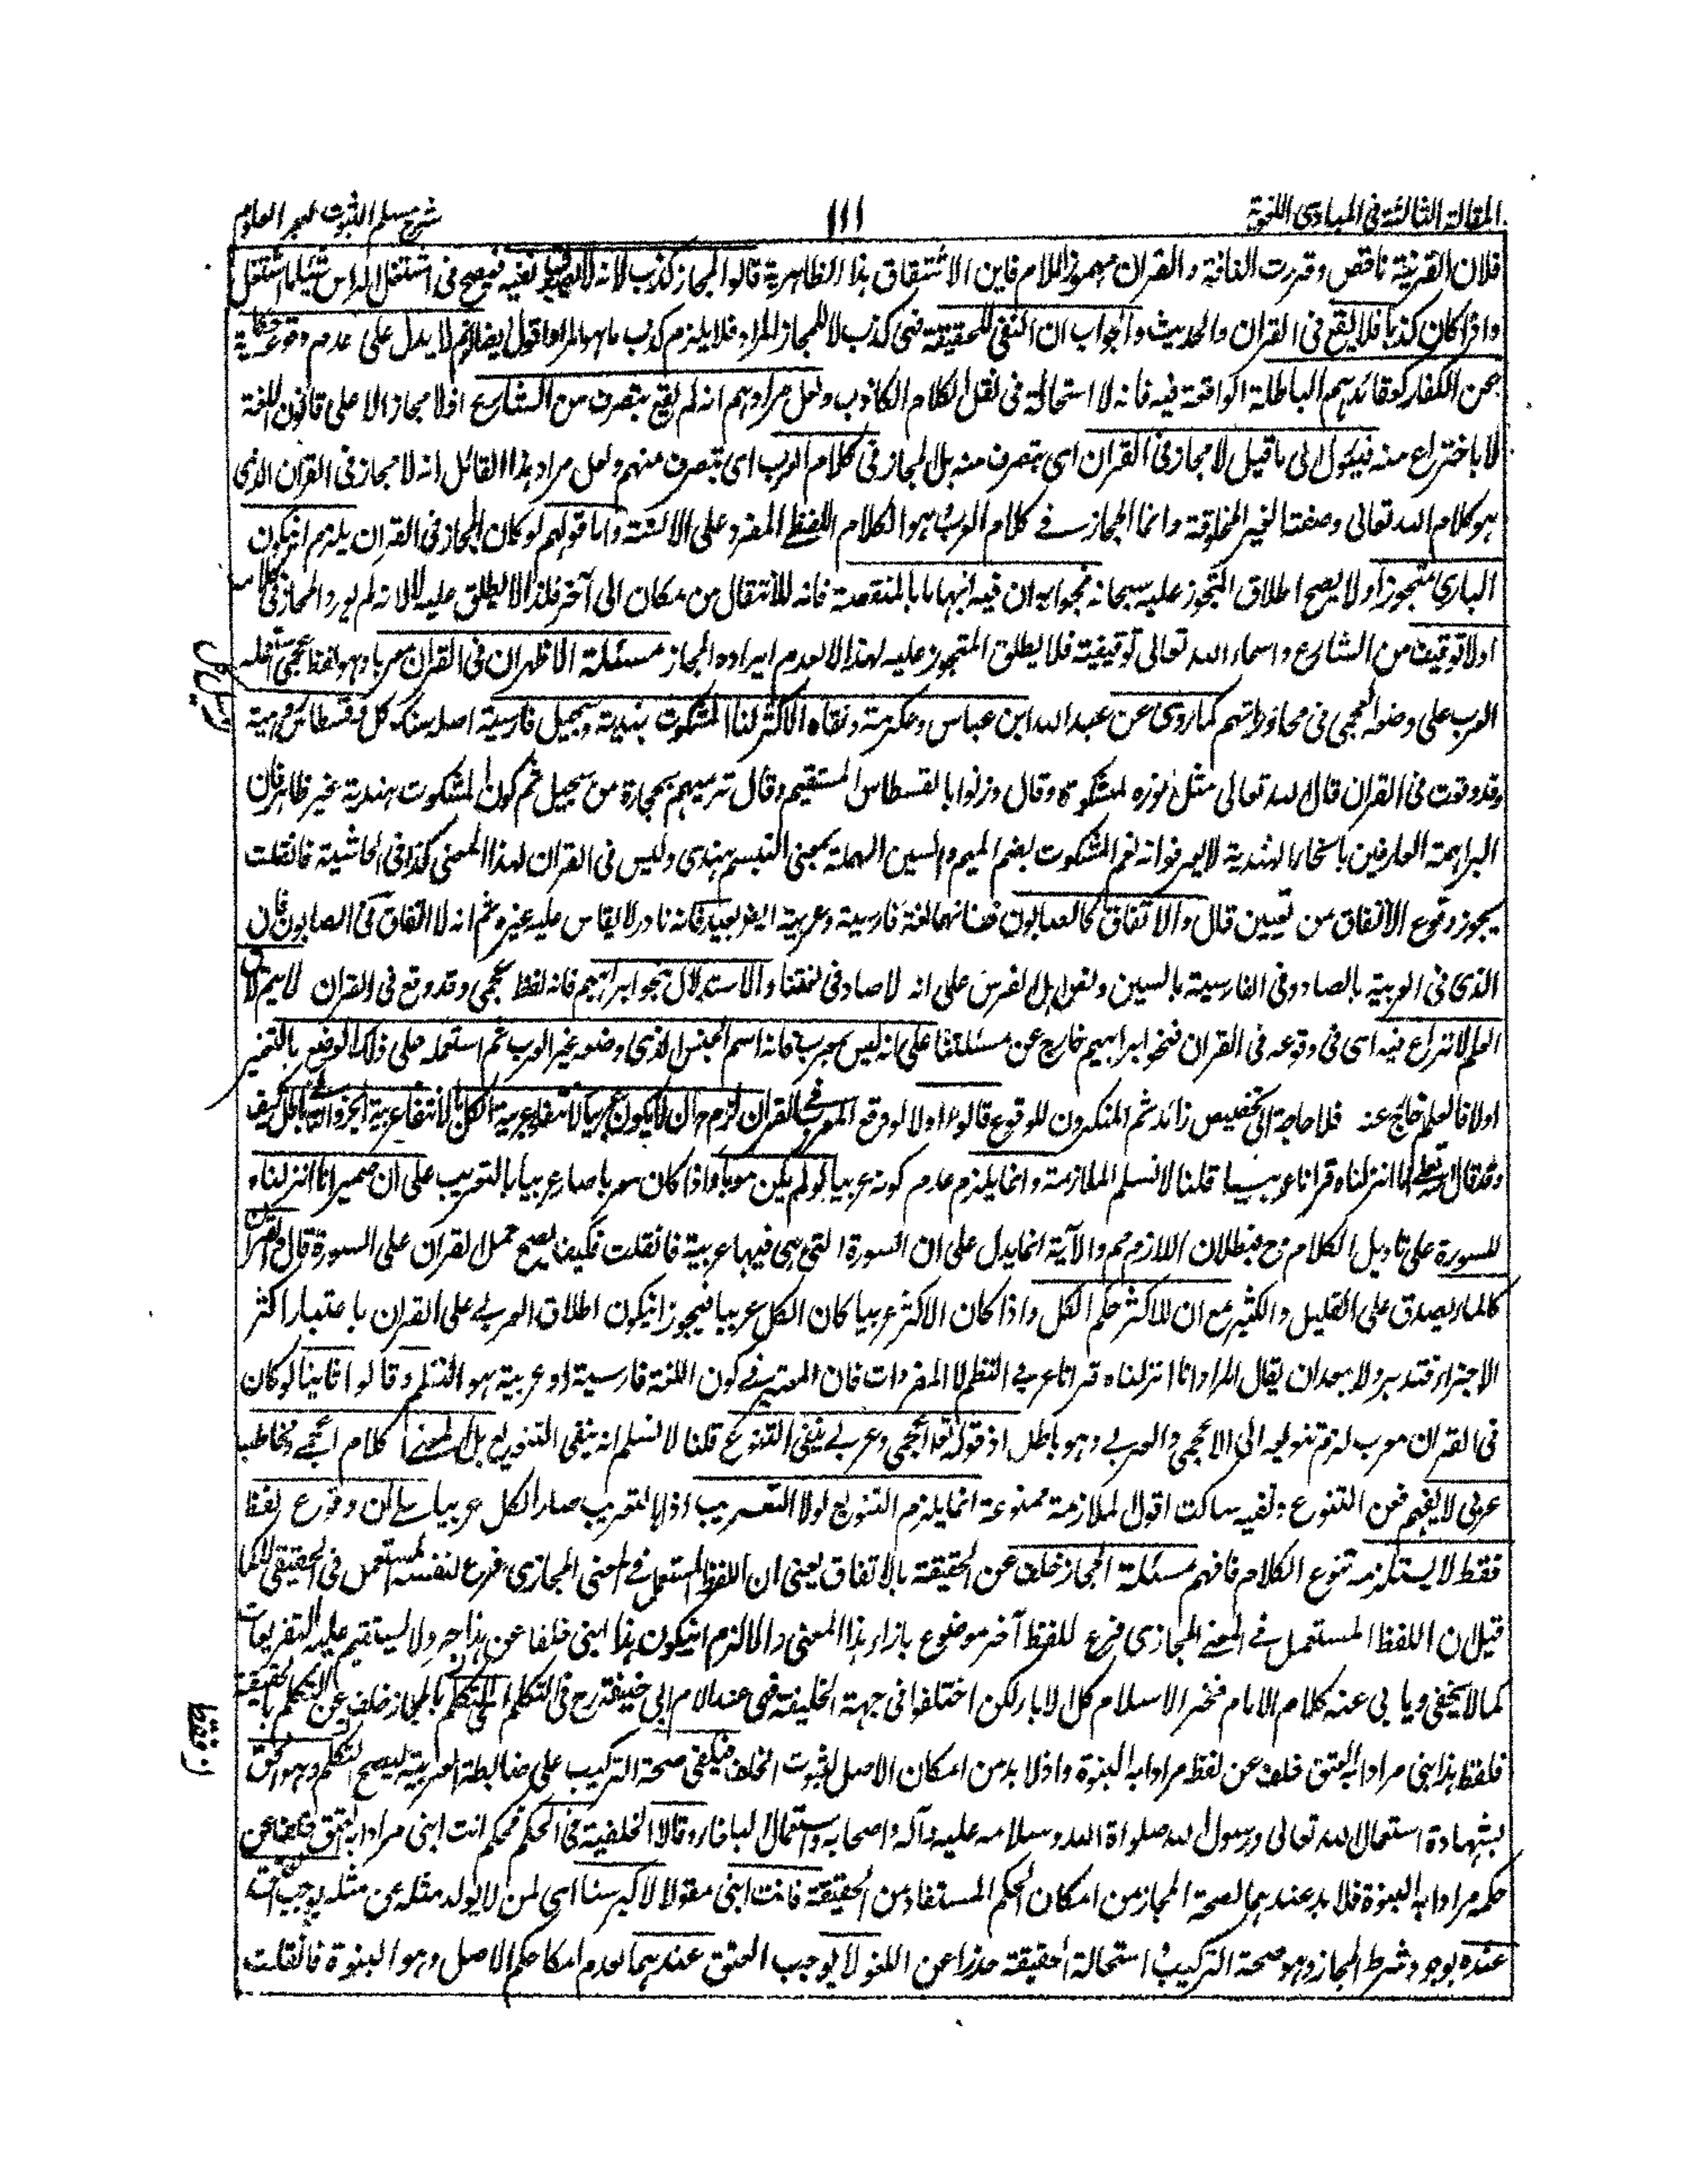 المقالة الثالثة فى المبادى اللغوية
١١١
شرح مسلم الثبوت لبحر العلوم
فلان القرينة ناقص وقررت الفانة والقران مهموز اللام فاين الاشتقاق هذا الظاهرية قالوا المجاز كذب لانه نفيه فيصح فى اشتعل الراس شيبا ما اشتعل
واذا كان كذبا فلا يقع فى القران والحديث والجواب ان النفى للحقيقة فهى كذب لا للمجاز المراد فلا يلزم كذب ما هو المراد اقول ايضا لا يدل على عدم وقوعه حكاية
عن الكفار كعقائدهم الباطلة الواقعة فيه فانه لا استحالة فى نقل الكلام الكاذب ولعل مرادهم انه لم يقع بتصرف من الشارع اذ لا مجاز الا على قانون اللغة
لا باختراع منه فيكول الى ما قيل لا مجاز فى القران اى بتصرف منه بل المجاز فى كلام العرب اى بتصرف منهم ولعل مراد هذا القائل انه لا مجاز فى القران الذى
هو كلام الله تعالى وصفته الغير المخلوقة وانما المجاز فى كلام العرب وهو الكلام اللفظى المقرو على الالسنة واما قولهم لو كان المجاز فى القران يلزم ان يكون
البارى متجوزا ولا يصح اطلاق المتجوز عليه سبحانه فجوابه ان فيه ايهاما بالمنقصة فانه للانتقال من مكان الى آخر فلذا لا يطلق عليه لا لانه لم يورد المجاز فى كلامه
اولا توقيف من الشارع واسماء الله تعالى توقيفية فلا يطلق المتجوز عليه لهذا لا لعدم ايراده المجاز مسئلة الاظهر ان فى القران معربا وهو لفظ عجمى استعمله
العرب على وضعه العجمى فى محاوراتهم كما روى عن عبد الله ابن عباس وعكرمة ونفاه الاكثر لنا المشكوت هندية وسجيل فارسية اصله سنك كل وقسطاس رومية
وقد وقعت فى القران قال الله تعالى مثل نوره كمشكوة وقال وزنوا بالقسطاس المستقيم وقال ترميهم بحجارة من سجيل ثم كون المشكوت هندية غير ظاهر فان
البراهمة العارفين بانحاء الهندية لا يعرفوانه نعم المشكوت بضم الميم والسين المهملة بمعنى التبسم هندى وليس فى القران لهذا المعنى كذا فى الحاشية فانقلت
يجوز وقوع الاتفاق من تعيين قال والاتفاق كالصابون فانهما لغة فارسية وعربية ايضا بعيد فانه نادر لا يقاس عليه غيره ثم انه لا اتفاق فى الصابون فان
الذى فى العربية بالصاد وفى الفارسية بالسين ونقل اهل الفرس على انه لا صاد فى لغتنا والاستدلال بنحو ابراهيم فانه لفظ عجمى وقد وقع فى القران لا يتم لان
العلم لا نزاع فيه اى فى وقوعه فى القران فنحو ابراهيم خارج عن مسئلتنا على انه ليس بمعرب فانه اسم الجنس الذى وضعه غير العرب ثم استعمله على ذلك الوضع بالتغير
اولا فالعلم خارج عنه فلا حاجة الى تخصيص زائد ثم المنكرون للوقوع قالوا اولا لو وقع المعرب فى القران لزم ان لا يكون عربيا لانتفاء عربية الكل بانتفاء عربية الجزء والتالى باطل كيف
وقد قال الله تعالى انا انزلناه قرانا عربيا قلنا لا نسلم الملازمة وانما يلزم عدم كونه عربيا لو لم يكن معربا واذا كان معربا صار عربيا بالتعريب على ان ضمير انا انزلناه
للسورة على تاويل الكلام رح فبطلان اللازم مم والآية انما يدل على ان السورة التى هى فيها عربية فانقلت فكيف يصح حمل القران على السورة قال والقران
كالماء يصدق على القليل والكثير مع ان للاكثر حكم الكل واذا كان الاكثر عربيا كان الكل عربيا فيجوز ان يكون اطلاق العربى على القران باعتبار اكثر
الاجزاء فتدبر ولا يبعد ان يقال المراد انا انزلناه قرانا عربى النظم لا المفردات فان المعتبر فى كون اللغة فارسية او عربية هو النظم وقالوا ثانيا لو كان
فى القران معرب لزم تنويعه الى الاعجمى والعربى وهو باطل اذ قوله تعالى ءاعجمى وعربى ينفى التنوع قلنا لا نسلم انه ينفى التنويع بل المعنى ا كلام اعجمى ومخاطب
عربى لا يفهم فعن التنوع ونفيه ساكت اقول الملازمة ممنوعة انما يلزم التنويع لولا التعريب اذ بالتعريب صار الكل عربيا على ان وقوع لفظ
فقط لا يستلزم تنوع الكلام فافهم مسئلة المجاز خلف عن الحقيقة بالاتفاق يعنى ان اللفظ المستعمل فى المعنى المجازى فرع لنفسه المستعمل فى الحقيقى لا كما
قيل ان اللفظ المستعمل فى المعنى المجازى فرع للفظ آخر موضوع بازاء هذا المعنى والا لزم ان يكون هذا ابنى خلفا عن هذا حر ولا يستقيم عليه التفريعات
كما لا يخفى ويابى عنه كلام الامام فخر الاسلام كل الاباء ولكن اختلفوا فى جهة الخليفة فهى عند الامام ابى حنيفة رح فى التكلم اى التكلم بالمجاز خلف عن التكلم بالحقيقة
فلفظ هذا ابنى مرادا به العتق خلف عن لفظ مرادا به البنوة واذ لا بد من امكان الاصل لثبوت الخلف فيكفى صحة التركيب على ضابطة العربية ليصح التكلم وهو الحق
بشهادة استعمال الله تعالى ورسول الله صلواة الله وسلامه عليه وآله واصحابه واستعمال البلغاء وقالا الخلفية فى الحكم فحكم انت ابنى مرادا به العتق خلف عن
حكمه مرادا به البنوة فلا بد عندهما لصحة المجاز من امكان الحكم المستفاد من الحقيقة فانت ابنى مقولا لاكبر سنا اى لمن لا يولد مثله عن مثله يوجب العتق
عنده بوجود شرط المجاز وهو صحة التركيب واستحالة الحقيقة حذرا عن اللغو لا يوجب العتق عندهما لعدم امكان حكم الاصل وهو البنوة فانقلت